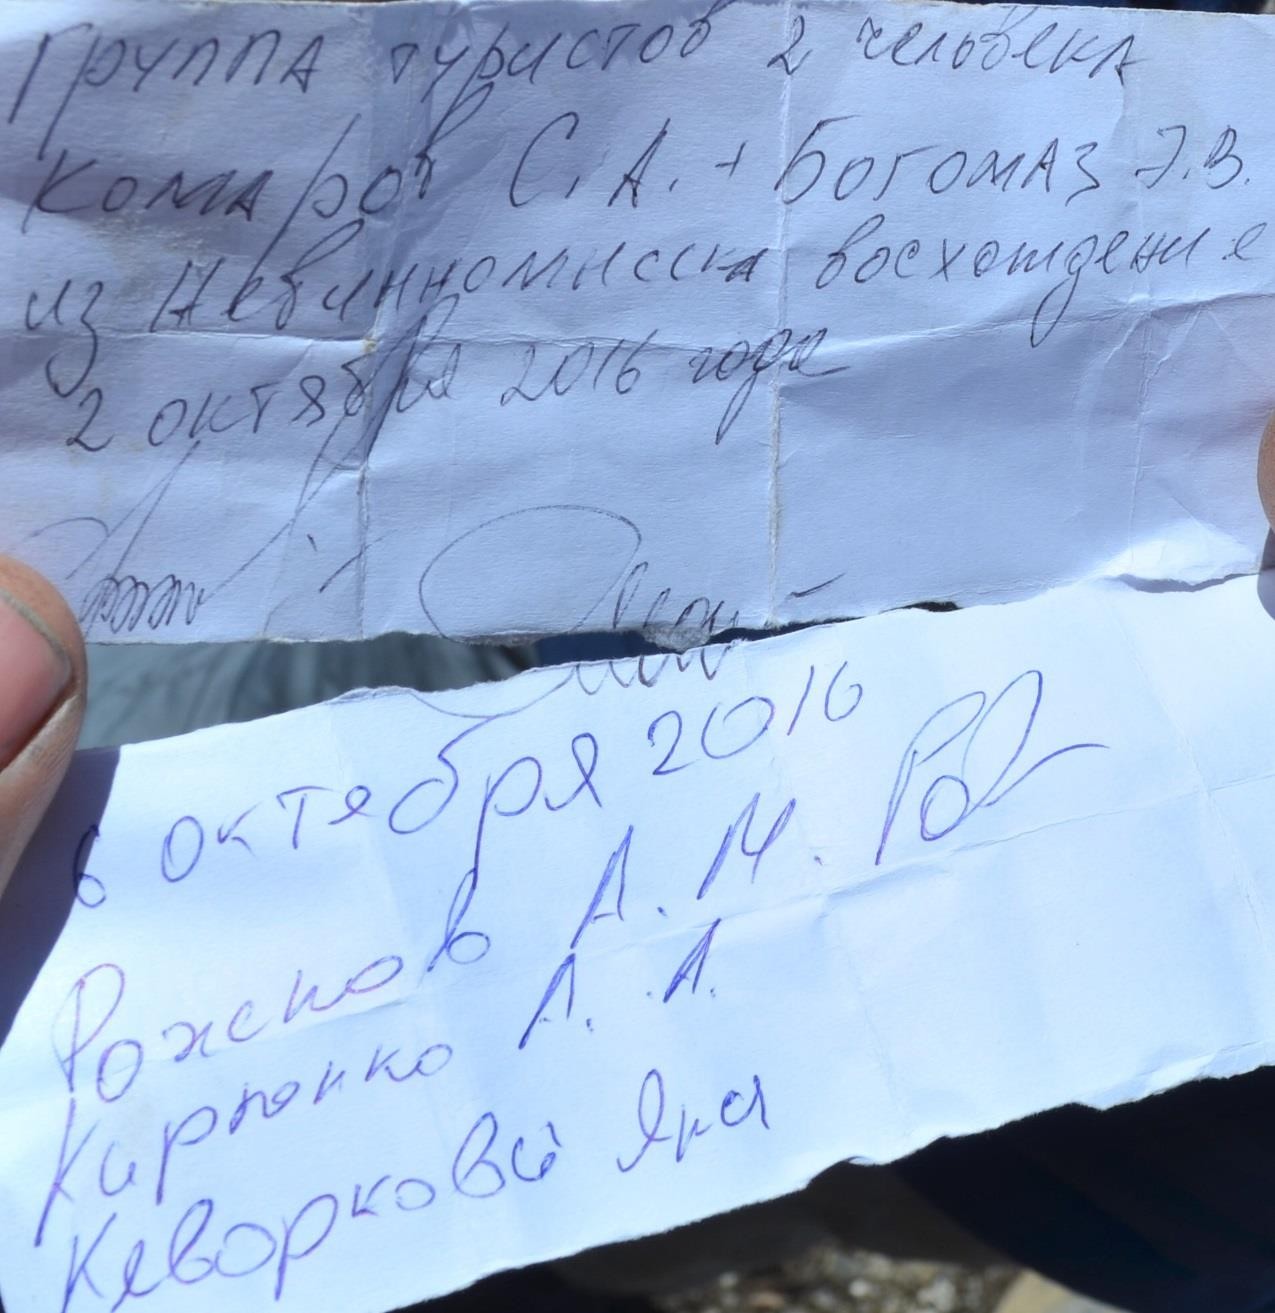 Группа туристов 2 человека
Комаров С.А. + Богомаз Э.В.
из Невинномысска восхождение
2 октября 2016 года
6 октября 2016
Рожков А.М.
Кирпонко А.А.
Кеворкова Яна